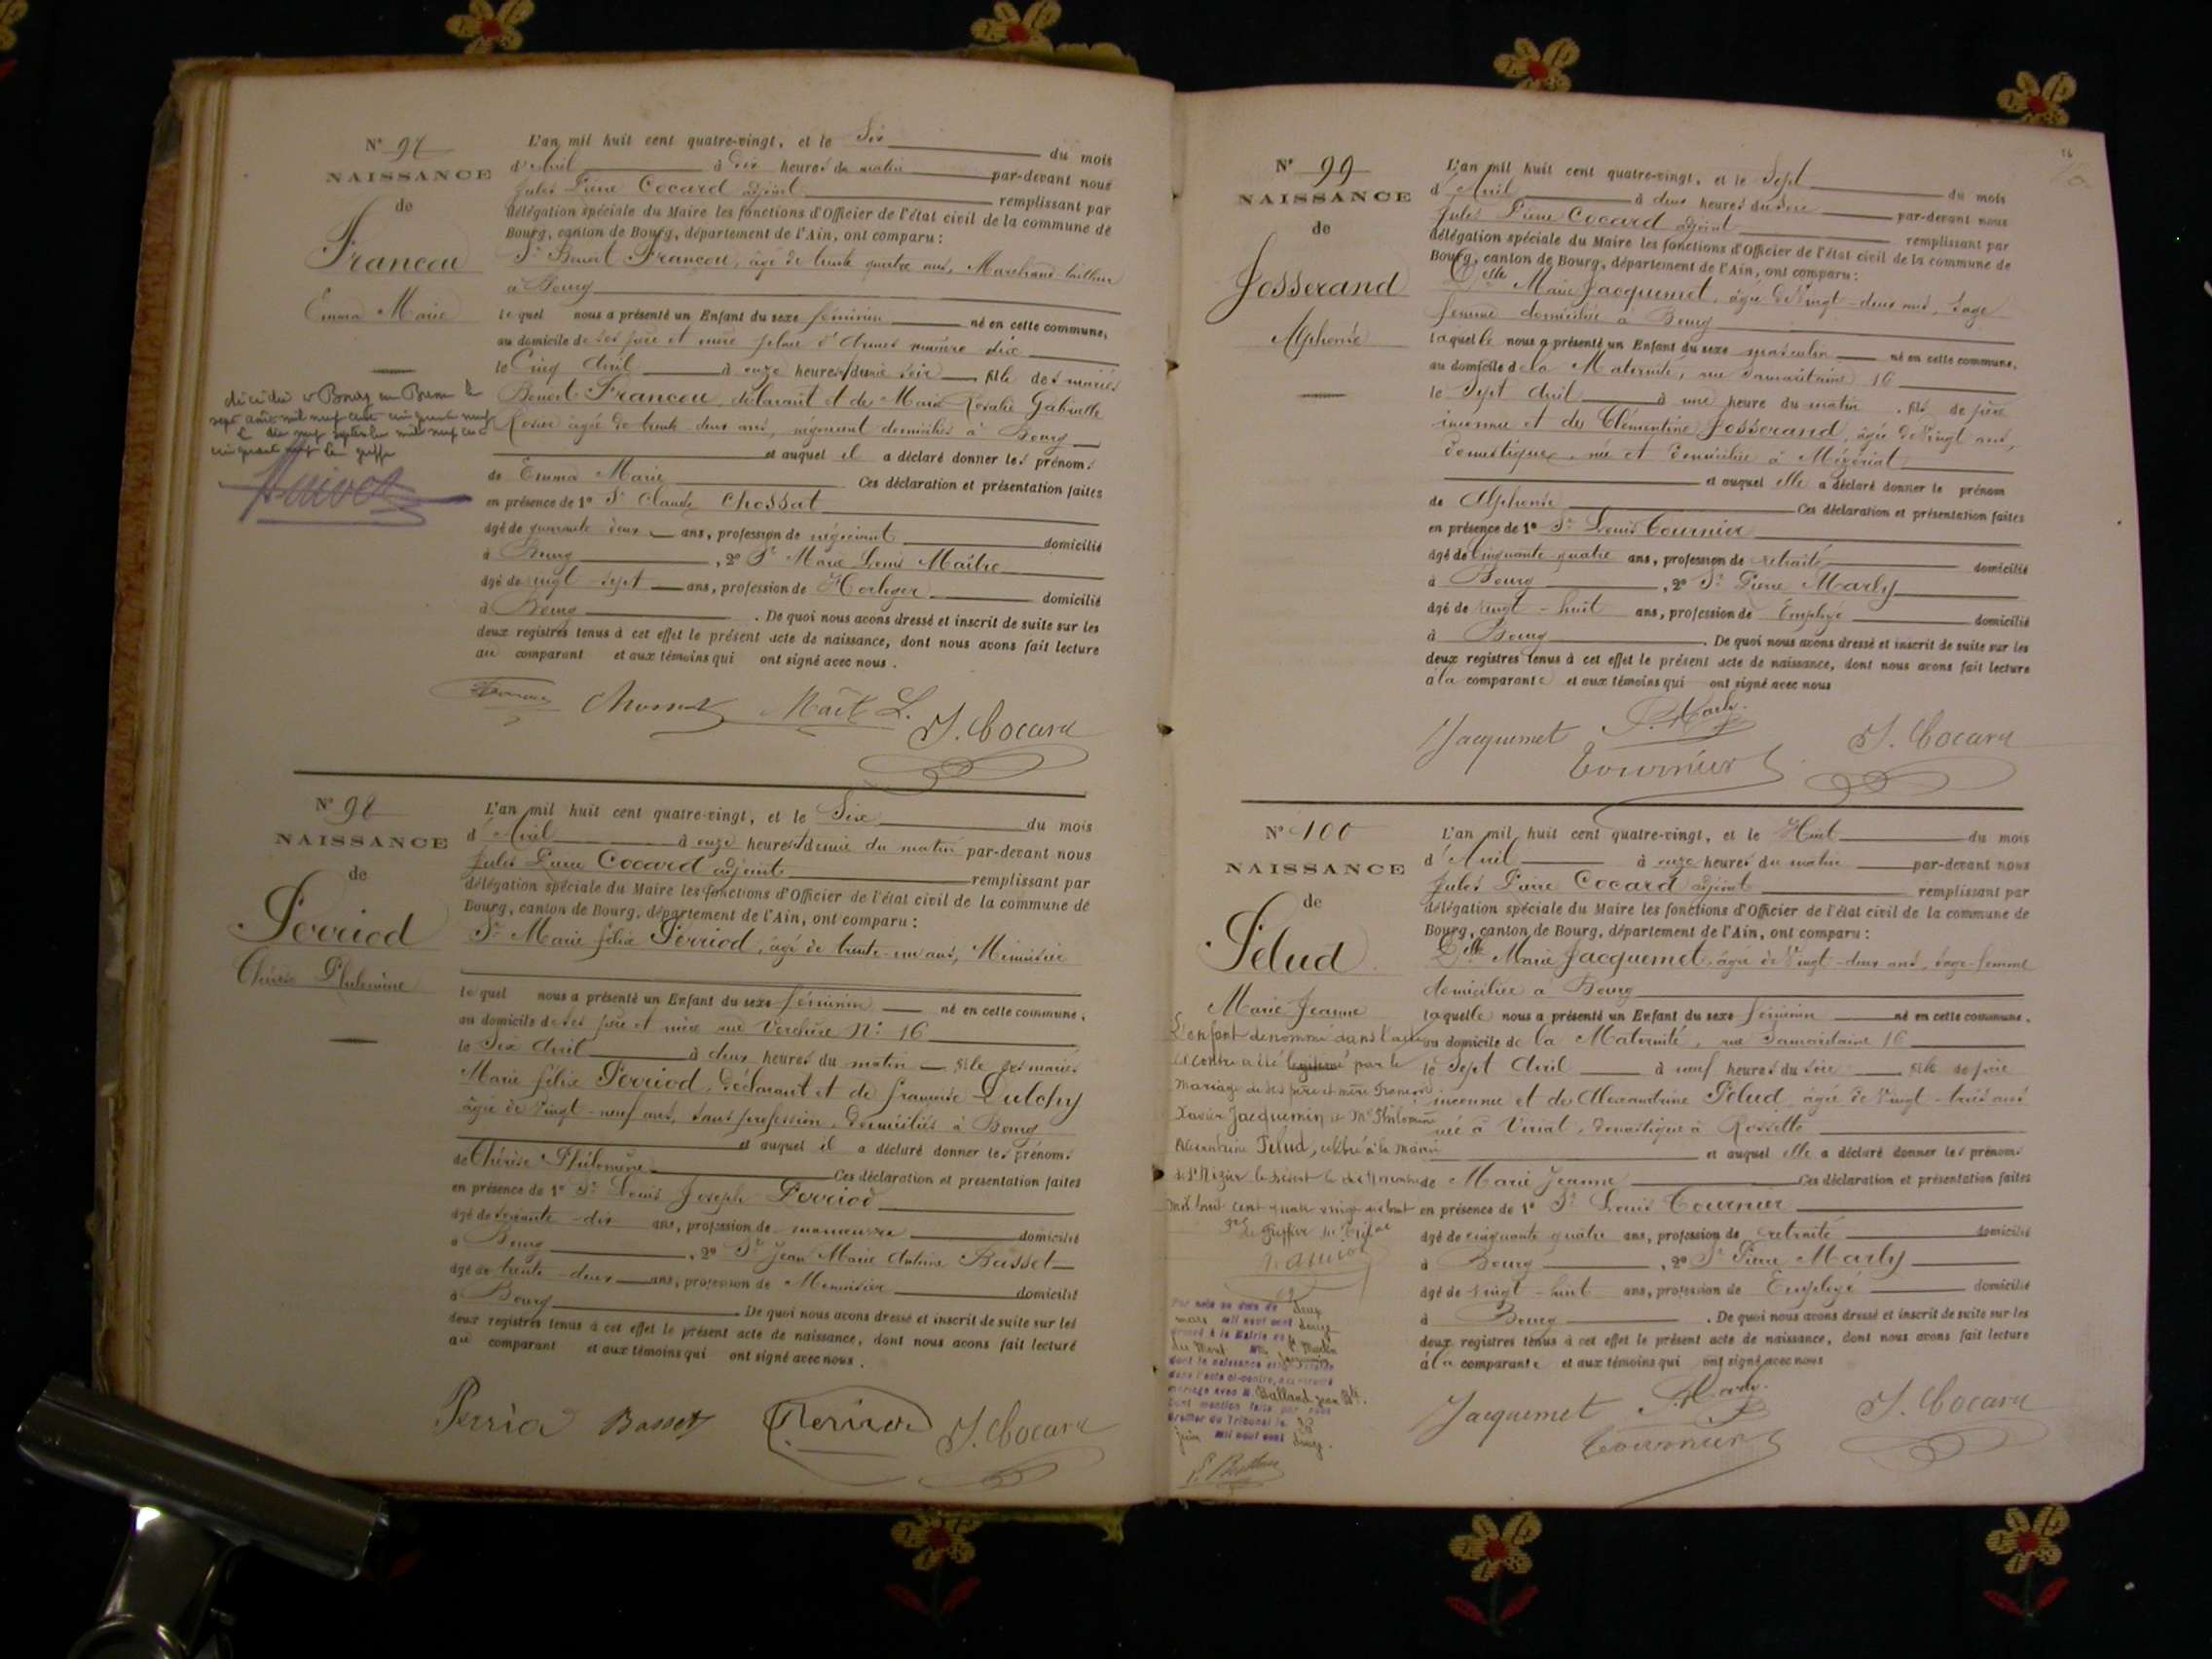 N° 97
NAISSANCE
de
Francou
Emma Marie
décédée à Bourg en Bresse le
sept août mil neuf cent cinquante neuf
le dix neuf septembre mil neuf cent
cinquante neuf Le greffier
L'an mil huit cent quatre-vingt, et le Six du mois
d'Avril à dix heures du matin par-devant nous
Jules Pierre Cocard adjoint remplissant par
délégation spéciale du Maire les fonctions d'Officier de l'état civil de la commune de
Bourg, canton de Bourg, département de l'Ain, ont comparu :
Sr Benoit Francou, âgé de trente quatre ans, Marchand tailleur
à Bourg
lequel nous a présenté un Enfant du sexe féminin né en cette commune,
au domicile de ses père et mère place d'Armes numéro dix
le Cinq Avril à onze heures du soir fille des mariés
Benoit Francou, déclarant et de Marie Rosalie Gabrielle
âgée de trente-deux ans, négociant domiciliés à Bourg
et auquel il a déclaré donner les prénoms
de Emma Marie Ces déclaration et présentation faites
en présence de 1° Sr Claude Chossat
âgé de quarante deux ans, profession de négociant domicilié
à Bourg, 2° Sr Marie Louis Maître
âgé de vingt-sept ans, profession de Horloger domicilié
à Bourg. De quoi nous avons dressé et inscrit de suite sur les
deux registres tenus à cet effet le présent acte de naissance, dont nous avons fait lecture
au comparant et aux témoins qui ont signé avec nous.
Chossat Maît L. J. Cocard
N° 98
NAISSANCE
de
Perriod
Thérèse Philomène
L'an mil huit cent quatre-vingt, et le Six du mois
d'Avril à onze heures & demie du matin par-devant nous
Jules Pierre Cocard adjoint remplissant par
délégation spéciale du Maire les fonctions d'Officier de l'état civil de la commune de
Bourg, canton de Bourg, département de l'Ain, ont comparu :
Sr Marie Félix Perriod, âgé de trente-un ans, Menuisier
lequel nous a présenté un Enfant du sexe féminin né en cette commune,
au domicile de ses père et mère rue Verchère N° 16
le Six Avril à deux heures du matin fille des mariés
Marie Félix Perriod, déclarant et de Françoise
âgée de vingt-neuf ans, sans profession, domiciliés à Bourg
et auquel il a déclaré donner les prénoms
de Thérèse Philomène Ces déclaration et présentation faites
en présence de 1° Sr Louis Joseph Perriod
âgé de soixante-dix ans, profession de manœuvre domicilié
à Bourg, 2° Sr Jean Marie Antoine Basset
âgé de trente-deux ans, profession de Menuisier domicilié
à Bourg. De quoi nous avons dressé et inscrit de suite sur les
deux registres tenus à cet effet le présent acte de naissance, dont nous avons fait lecture
au comparant et aux témoins qui ont signé avec nous.
Perriod Basset Perriod J. Cocard
N° 99
NAISSANCE
de
Josserand
Alphonse
L'an mil huit cent quatre-vingt, et le Sept du mois
d'Avril à deux heures du soir par-devant nous
Jules Pierre Cocard adjoint remplissant par
délégation spéciale du Maire les fonctions d'Officier de l'état civil de la commune de
Bourg, canton de Bourg, département de l'Ain, ont comparu :
Delle Marie Jacquemet, âgée de Vingt-deux ans, Sage
femme domiciliée à Bourg
laquelle nous a présenté un Enfant du sexe masculin né en cette commune,
au domicile de la Maternité, rue Samaritaine 16
le Sept Avril à une heure du matin, fils de père
inconnu et de Clémentine Josserand, âgée de Vingt ans,
domestique, née et domiciliée à Mézériat
et auquel elle a déclaré donner le prénom
de Alphonse Ces déclaration et présentation faites
en présence de 1° Sr Louis Tournier
âgé de Cinquante-quatre ans, profession de retraité domicilié
à Bourg, 2° Sr Pierre Marly
âgé de vingt-huit ans, profession de Employé domicilié
à Bourg. De quoi nous avons dressé et inscrit de suite sur les
deux registres tenus à cet effet le présent acte de naissance, dont nous avons fait lecture
à la comparante et aux témoins qui ont signé avec nous
Jacquemet P. Marly J. Cocard
Tournier
N° 100
NAISSANCE
de
Pelud
Marie Jeanne
L'enfant dénommé dans l'acte
ci contre a été légitimé par le
mariage de ses père et mère François
Xavier Jacquemin et Mie Philomène
Alexandrine Pelud, célébré à la Mairie
de St Nizier le Désert le dix Novembre
mil huit cent quatre vingt
Le Greffier du Tribal
Par acte en date du deux
mars mil neuf cent douze
dressé à la Mairie de St Martin
du Mont
dont la naissance est
dans l'acte ci-contre, a contracté
mariage avec M. Balland Jean
Dont mention faite par nous
Greffier du Tribunal le
juin mil neuf cent douze.
L'an mil huit cent quatre-vingt, et le Huit du mois
d'Avril à onze heures du matin par-devant nous
Jules Pierre Cocard adjoint remplissant par
délégation spéciale du Maire les fonctions d'Officier de l'état civil de la commune de
Bourg, canton de Bourg, département de l'Ain, ont comparu :
Delle Marie Jacquemet âgée de Vingt-deux ans, Sage-femme
domiciliée à Bourg
laquelle nous a présenté un Enfant du sexe féminin né en cette commune,
au domicile de la Maternité, rue Samaritaine 16
le Sept Avril à neuf heures du soir fille de père
inconnu et de Alexandrine Pelud, âgée de Vingt-trois ans
née à Viriat, domestique à
et auquel elle a déclaré donner les prénoms
de Marie Jeanne Ces déclaration et présentation faites
en présence de 1° Sr Louis Tournier
âgé de cinquante quatre ans, profession de retraité domicilié
à Bourg, 2° Sr Pierre Marly
âgé de vingt-huit ans, profession de Employé domicilié
à Bourg. De quoi nous avons dressé et inscrit de suite sur les
deux registres tenus à cet effet le présent acte de naissance, dont nous avons fait lecture
à la comparante et aux témoins qui ont signé avec nous
Jacquemet P. Marly J. Cocard
Tournier